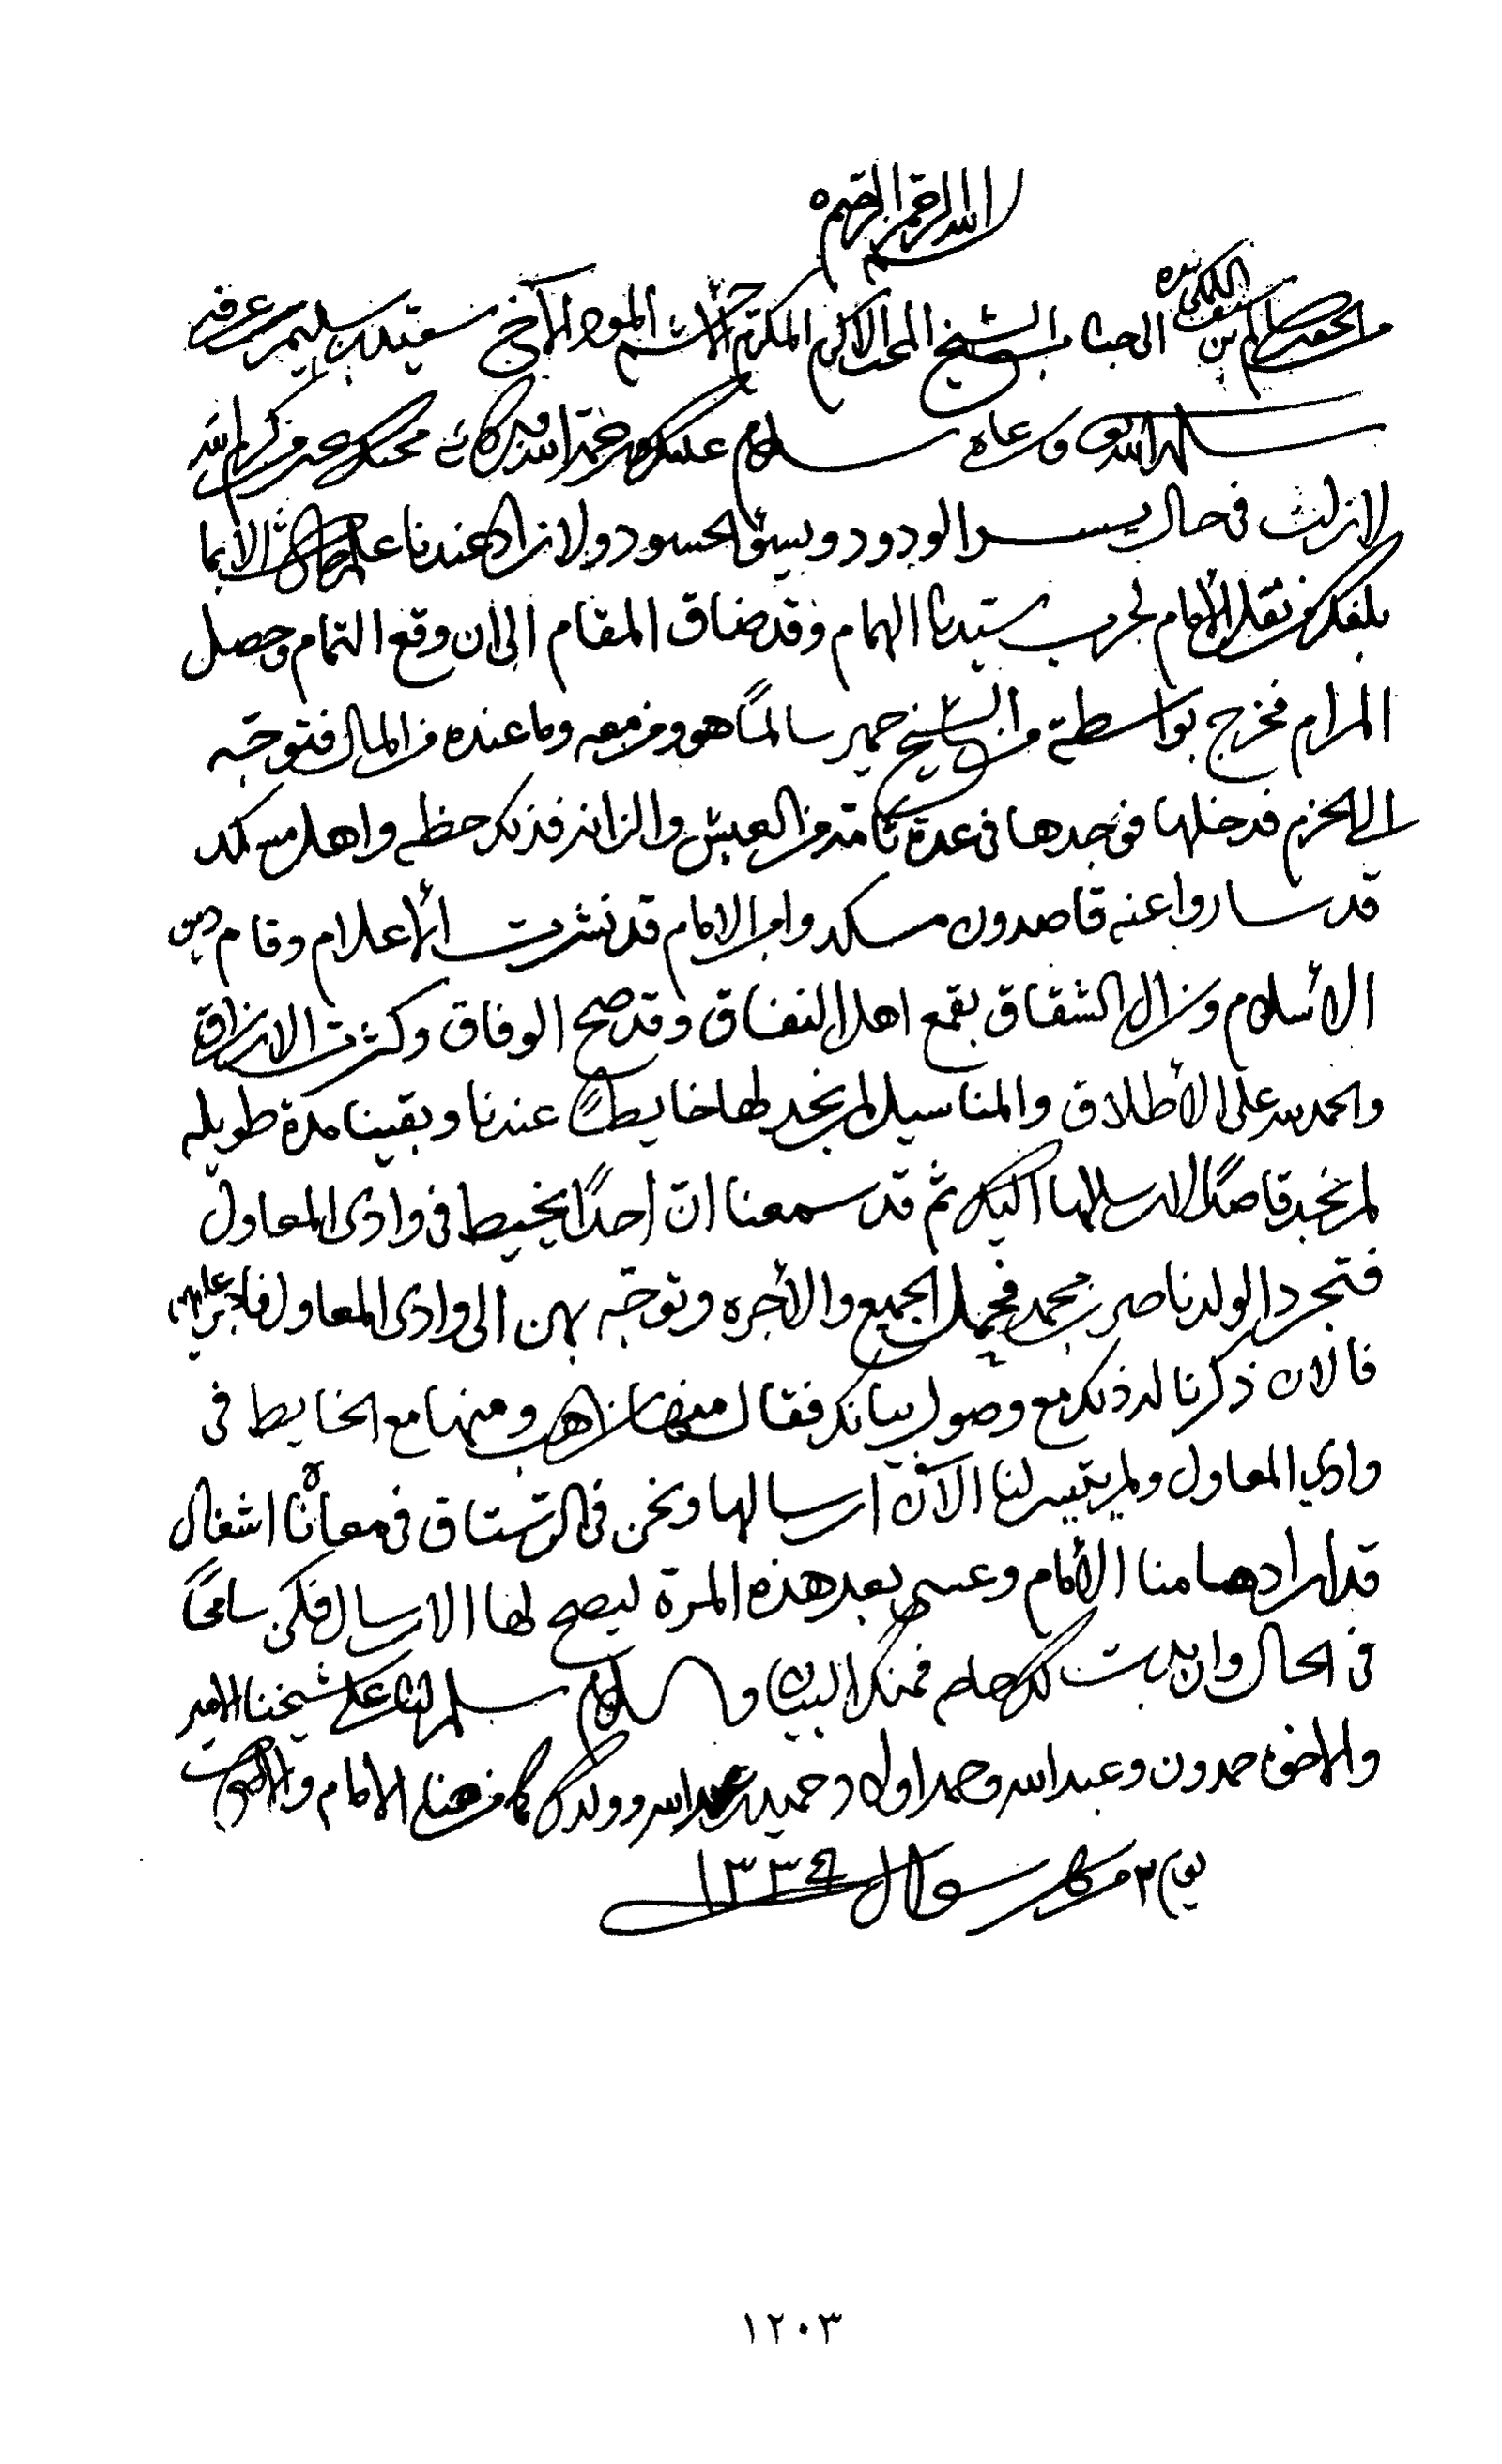 بسم الله الرحمن الرحيم
من الى جناب الشيخ المحب الاكرم المكرم الاحشم المود الاخ
سلمه الله تعالى ورعاه سلام عليكم ورحمة الله وبركاته محبك بخير من كرم الله
لا زلت في حال يسر الودود ويسوء الحسود ولا زاد عندنا علم الا بما
بلغكم من نقل الإمام لحرب سيدنا الهمام وقد ضاق المقام الى ان وقع التمام وحصل
المرام فخرج بواسطة الشيخ حمير سالمًا هو ومن معه وما عنده من المال فتوجّه
الى الحزم فدخلها فوجدها في عدة تامة من العيش والزانة فذلك حظه واهل مسكد
قد ساروا عنه قاصدون مسكد وامر الامام قد نشرت الأعلام وقام دين
الأسلام وزال الشقاق بقمع اهل النفاق وقد صح الوفاق وكثرت الارزاق
والحمد لله على الأطلاق والمناسيل لم نجد لها خايطًا عندنا وبقينا مدة طويله
لم نجد قاصدًا لارسالها اليك ثم قد سمعنا انّ احدًا يخيط في وادى المعاول
فتجرد الولد ناصر بن محمد فحمل الجميع والأجره وتوجّه بهن الى وادى المعاول
فالان ذكرنا له ذلك مع وصول بيانك فقال منها زاهب ومنها مع الخايط في
وادي المعاول ولم يتيسر لنا الآن ارسالها ونحن في الرستاق في معاناة اشغال
قد ارادها منا الأمام وعسى بعد هذه المرة ليصح لها الارسال فكن سامحًا
في الحال وان بدت لك حاجه فمنك البيان والسلام سلم لنا على شيخنا الامير
والاخوة حمدون وعبدالله وحمد اولاد حميد وعبدالله وولدك كما من هنا الامام والاخوان
يوم ٣ من شهر شوال ١٣٣٤
١٢٠٣